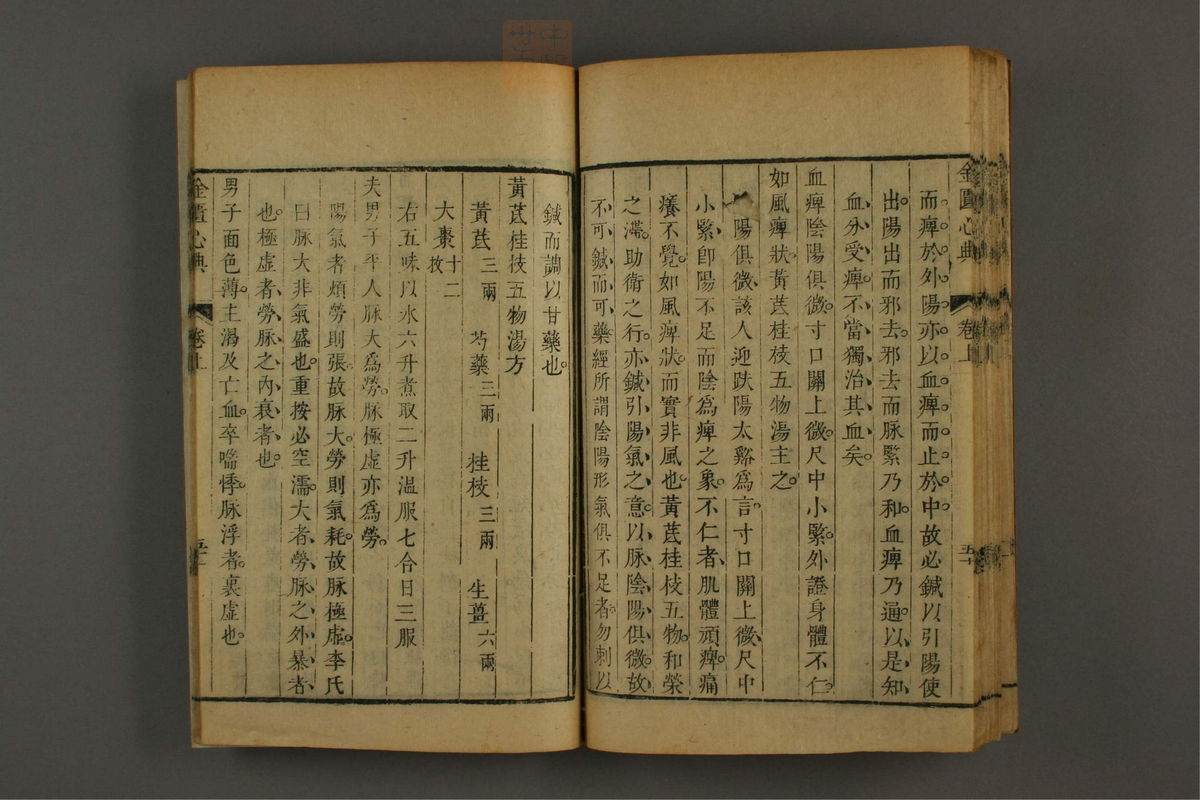 金匱心典
卷上
五十
而痺於外陽亦以血痺而止於中故必鍼以引陽使
出陽出而邪去邪去而脉緊乃和血痺乃通以是知
血分受痺不當獨治其血矣
血痺陰陽俱微寸口關上微尺中小緊外證身體不仁
如風痺狀黃芪桂枝五物湯主之
陽俱微該人迎趺陽太谿為言寸口關上微尺中
小緊卽陽不足而陰為痺之象不仁者肌體頑痺痛
癢不覺如風痺狀而實非風也黃芪桂枝五物和榮
之滯助衛之行亦鍼引陽氣之意以脉陰陽俱微故
不可鍼而可藥經所謂陰陽形氣俱不足者勿刺以
鍼而調以甘藥也
黃芪桂枝五物湯方
黃芪三兩 芍藥三兩 桂枝三兩 生薑六兩
大棗十二枚
右五味以水六升煮取二升温服七合日三服
夫男子平人脉大爲勞脉極虛亦爲勞
陽氣者煩勞則張故脉大勞則氣耗故脉極虛李氏
曰脉大非氣盛也重按必空濡大者勞脉之外暴者
也極虛者勞脉之內衰者也
男子面色薄主渴及亡血卒喘悸脉浮者裏虛也
金匱心典
卷上